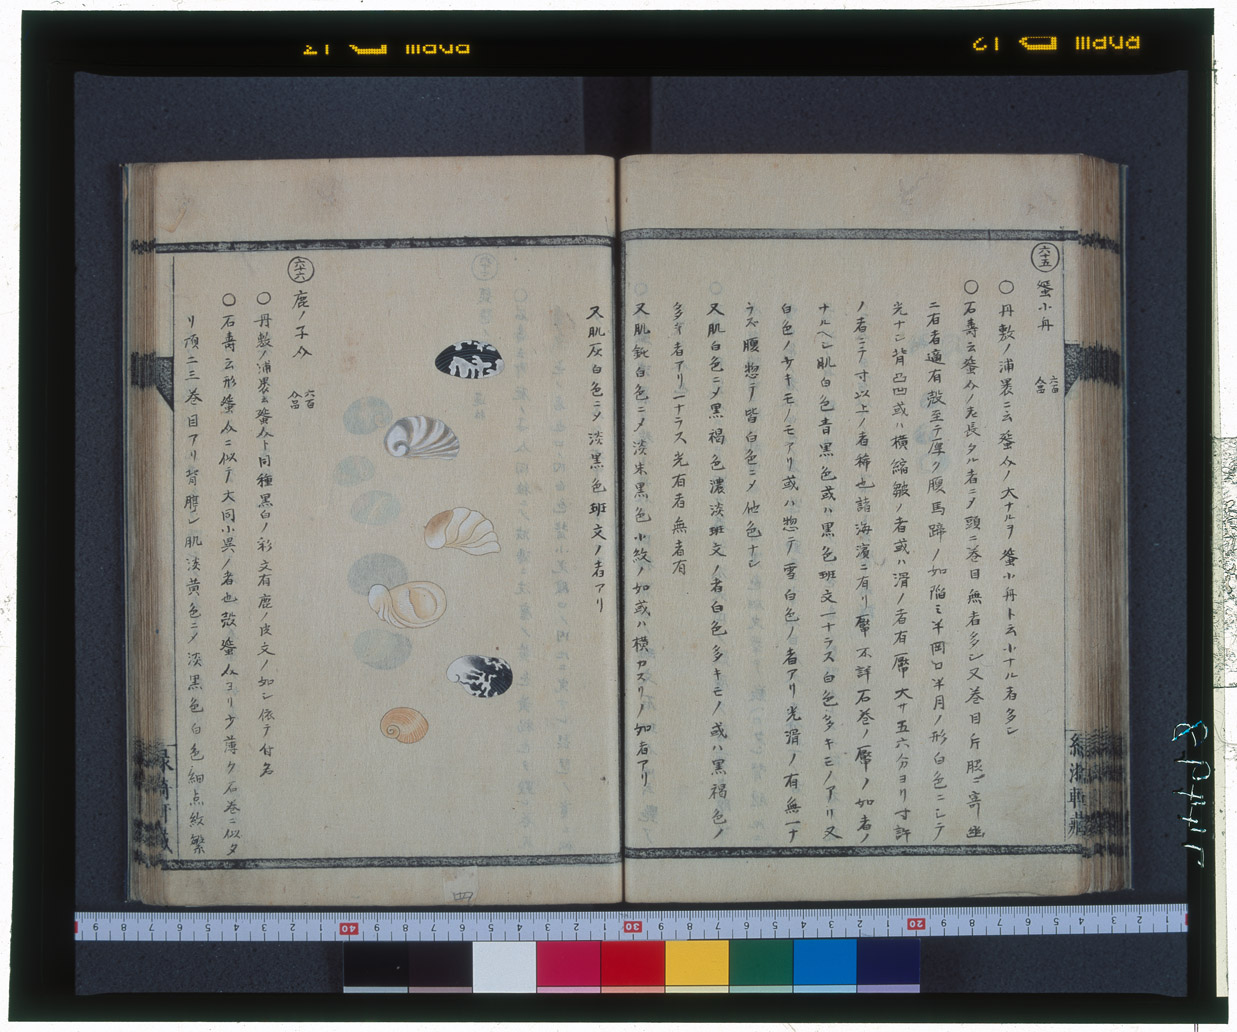 六十五
蜑小舟
六百
〇丹敷ノ浦裏ニ云蜑介ノ大ナルヲ蜑小舟ト云小ナル者多シ
〇石壽云蜑介ノ老長タル者ニメ頭ニ巻目無者多シ又巻目斤照ニ寄
ニ有者適有殻至テ厚ク腹馬蹄ノ如陥ミ半岡口半月ノ形白色ニシテ
光ナシ背凸凹或ハ横縮皺ノ者或ハ滑ノ者有厴大サ五六分ヨリ寸許
ノ者ニテ寸以上ノ者稀也諸海濱ニ有リ厴不詳石巻ノ厴ノ如者ノ
ナルヘシ肌白色青黒色或ハ黒色班文一ナラス白色多キモノアリ又
白色ノサキモノモアリ或ハ惣テ雪白色ノ者アリ光滑ノ有無一ナ
ラス腹惣テ皆白色ニメ他色ナシ
又肌白色ニメ黒褐色濃淡班文ノ者白色多キモノ或ハ黒褐色ノ
多キ者アリ一ナラス光有者無者有
又肌鈍白色ニメ淡朱黒色小紋ノ如或ハ横カスリノ如者アリ
又肌灰白色ニメ淡黒色班文ノ者アリ
六十六
鹿ノ子介
六百
〇丹敷ノ浦裏云蜑介ト同種黒白ノ彩文有鹿ノ皮文ノ如シ依テ付名
〇石壽云形蜑介ニ似テ大同小異ノ者也殻蜑介ヨリサ薄ク石巻ニ似タ
リ頂ニ三巻目アリ背膨シ肌淡黄色ニメ淡黒色白色細点紋繁
四